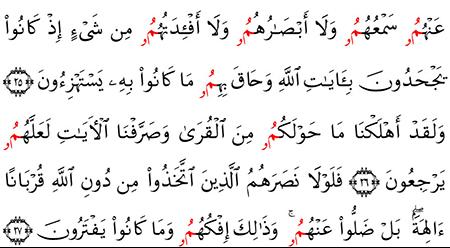 عَنْهُمُۥ سَمْعُهُمُۥ وَلَا أَبْصَٰرُهُمُۥ وَلَا أَفْـِٔدَتُهُمُۥ مِن شَىْءٍ إِذْ كَانُوا۟
يَجْحَدُونَ بِـَٔايَٰتِ ٱللَّهِ وَحَاقَ بِهِمُۥ مَا كَانُوا۟ بِهِۦ يَسْتَهْزِءُونَ ﴿٢٥﴾
وَلَقَدْ أَهْلَكْنَا مَا حَوْلَكُمُۥ مِنَ ٱلْقُرَىٰ وَصَرَّفْنَا ٱلْأٓيَٰتِ لَعَلَّهُمُۥ
يَرْجِعُونَ ﴿٢٦﴾ فَلَوْلَا نَصَرَهُمُ ٱلَّذِينَ ٱتَّخَذُوا۟ مِن دُونِ ٱللَّهِ قُرْبَانًا
ءَالِهَةَۢۖ بَلْ ضَلُّوا۟ عَنْهُمُۥۚ وَذَٰلِكَ إِفْكُهُمُۥ وَمَا كَانُوا۟ يَفْتَرُونَ ﴿٢٧﴾